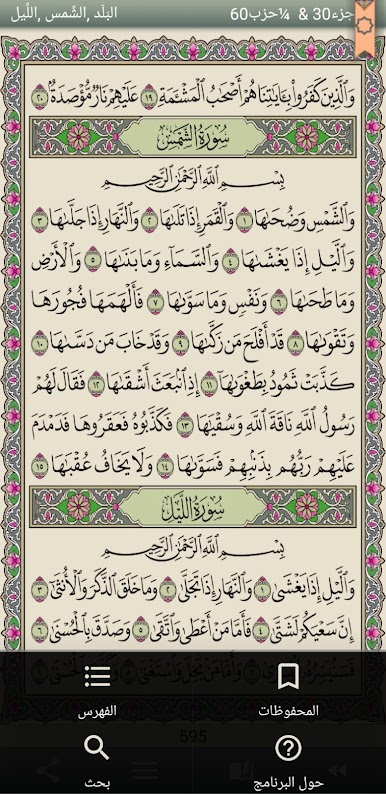 جزء30 & ¼حزب60
البَلَد ,الشَّمس ,اللَّيل
وَالَّذِينَ كَفَرُوا۟ بِـَٔايَٰتِنَا هُمْ أَصْحَٰبُ ٱلْمَشْـَٔمَةِ ١٩ عَلَيْهِمْ نَارٌ مُّؤْصَدَةٌۢ ٢٠
سُورَةُ الشَّمْسِ
بِسْمِ ٱللَّهِ ٱلرَّحْمَٰنِ ٱلرَّحِيمِ
وَٱلشَّمْسِ وَضُحَىٰهَا ١ وَٱلْقَمَرِ إِذَا تَلَىٰهَا ٢ وَٱلنَّهَارِ إِذَا جَلَّىٰهَا ٣
وَٱلَّيْلِ إِذَا يَغْشَىٰهَا ٤ وَٱلسَّمَآءِ وَمَا بَنَىٰهَا ٥ وَٱلْأَرْضِ
وَمَا طَحَىٰهَا ٦ وَنَفْسٍ وَمَا سَوَّىٰهَا ٧ فَأَلْهَمَهَا فُجُورَهَا
وَتَقْوَىٰهَا ٨ قَدْ أَفْلَحَ مَن زَكَّىٰهَا ٩ وَقَدْ خَابَ مَن دَسَّىٰهَا ١٠
كَذَّبَتْ ثَمُودُ بِطَغْوَىٰهَآ ١١ إِذِ ٱنۢبَعَثَ أَشْقَىٰهَا ١٢ فَقَالَ لَهُمْ
رَسُولُ ٱللَّهِ نَاقَةَ ٱللَّهِ وَسُقْيَٰهَا ١٣ فَكَذَّبُوهُ فَعَقَرُوهَا فَدَمْدَمَ
عَلَيْهِمْ رَبُّهُم بِذَنۢبِهِمْ فَسَوَّىٰهَا ١٤ وَلَا يَخَافُ عُقْبَٰهَا ١٥
سُورَةُ اللَّيْلِ
بِسْمِ ٱللَّهِ ٱلرَّحْمَٰنِ ٱلرَّحِيمِ
وَٱلَّيْلِ إِذَا يَغْشَىٰ ١ وَٱلنَّهَارِ إِذَا تَجَلَّىٰ ٢ وَمَا خَلَقَ ٱلذَّكَرَ وَٱلْأُنثَىٰٓ ٣
إِنَّ سَعْيَكُمْ لَشَتَّىٰ ٤ فَأَمَّا مَنْ أَعْطَىٰ وَٱتَّقَىٰ ٥ وَصَدَّقَ بِٱلْحُسْنَىٰ ٦
فَسَنُيَسِّرُهُۥ ٧ وَأَمَّا مَنۢ بَخِلَ وَٱسْتَغْنَىٰ ٨ وَكَذَّبَ بِٱلْحُسْنَىٰ ٩
المحفوظات
الفهرس
595
حول البرنامج
بحث